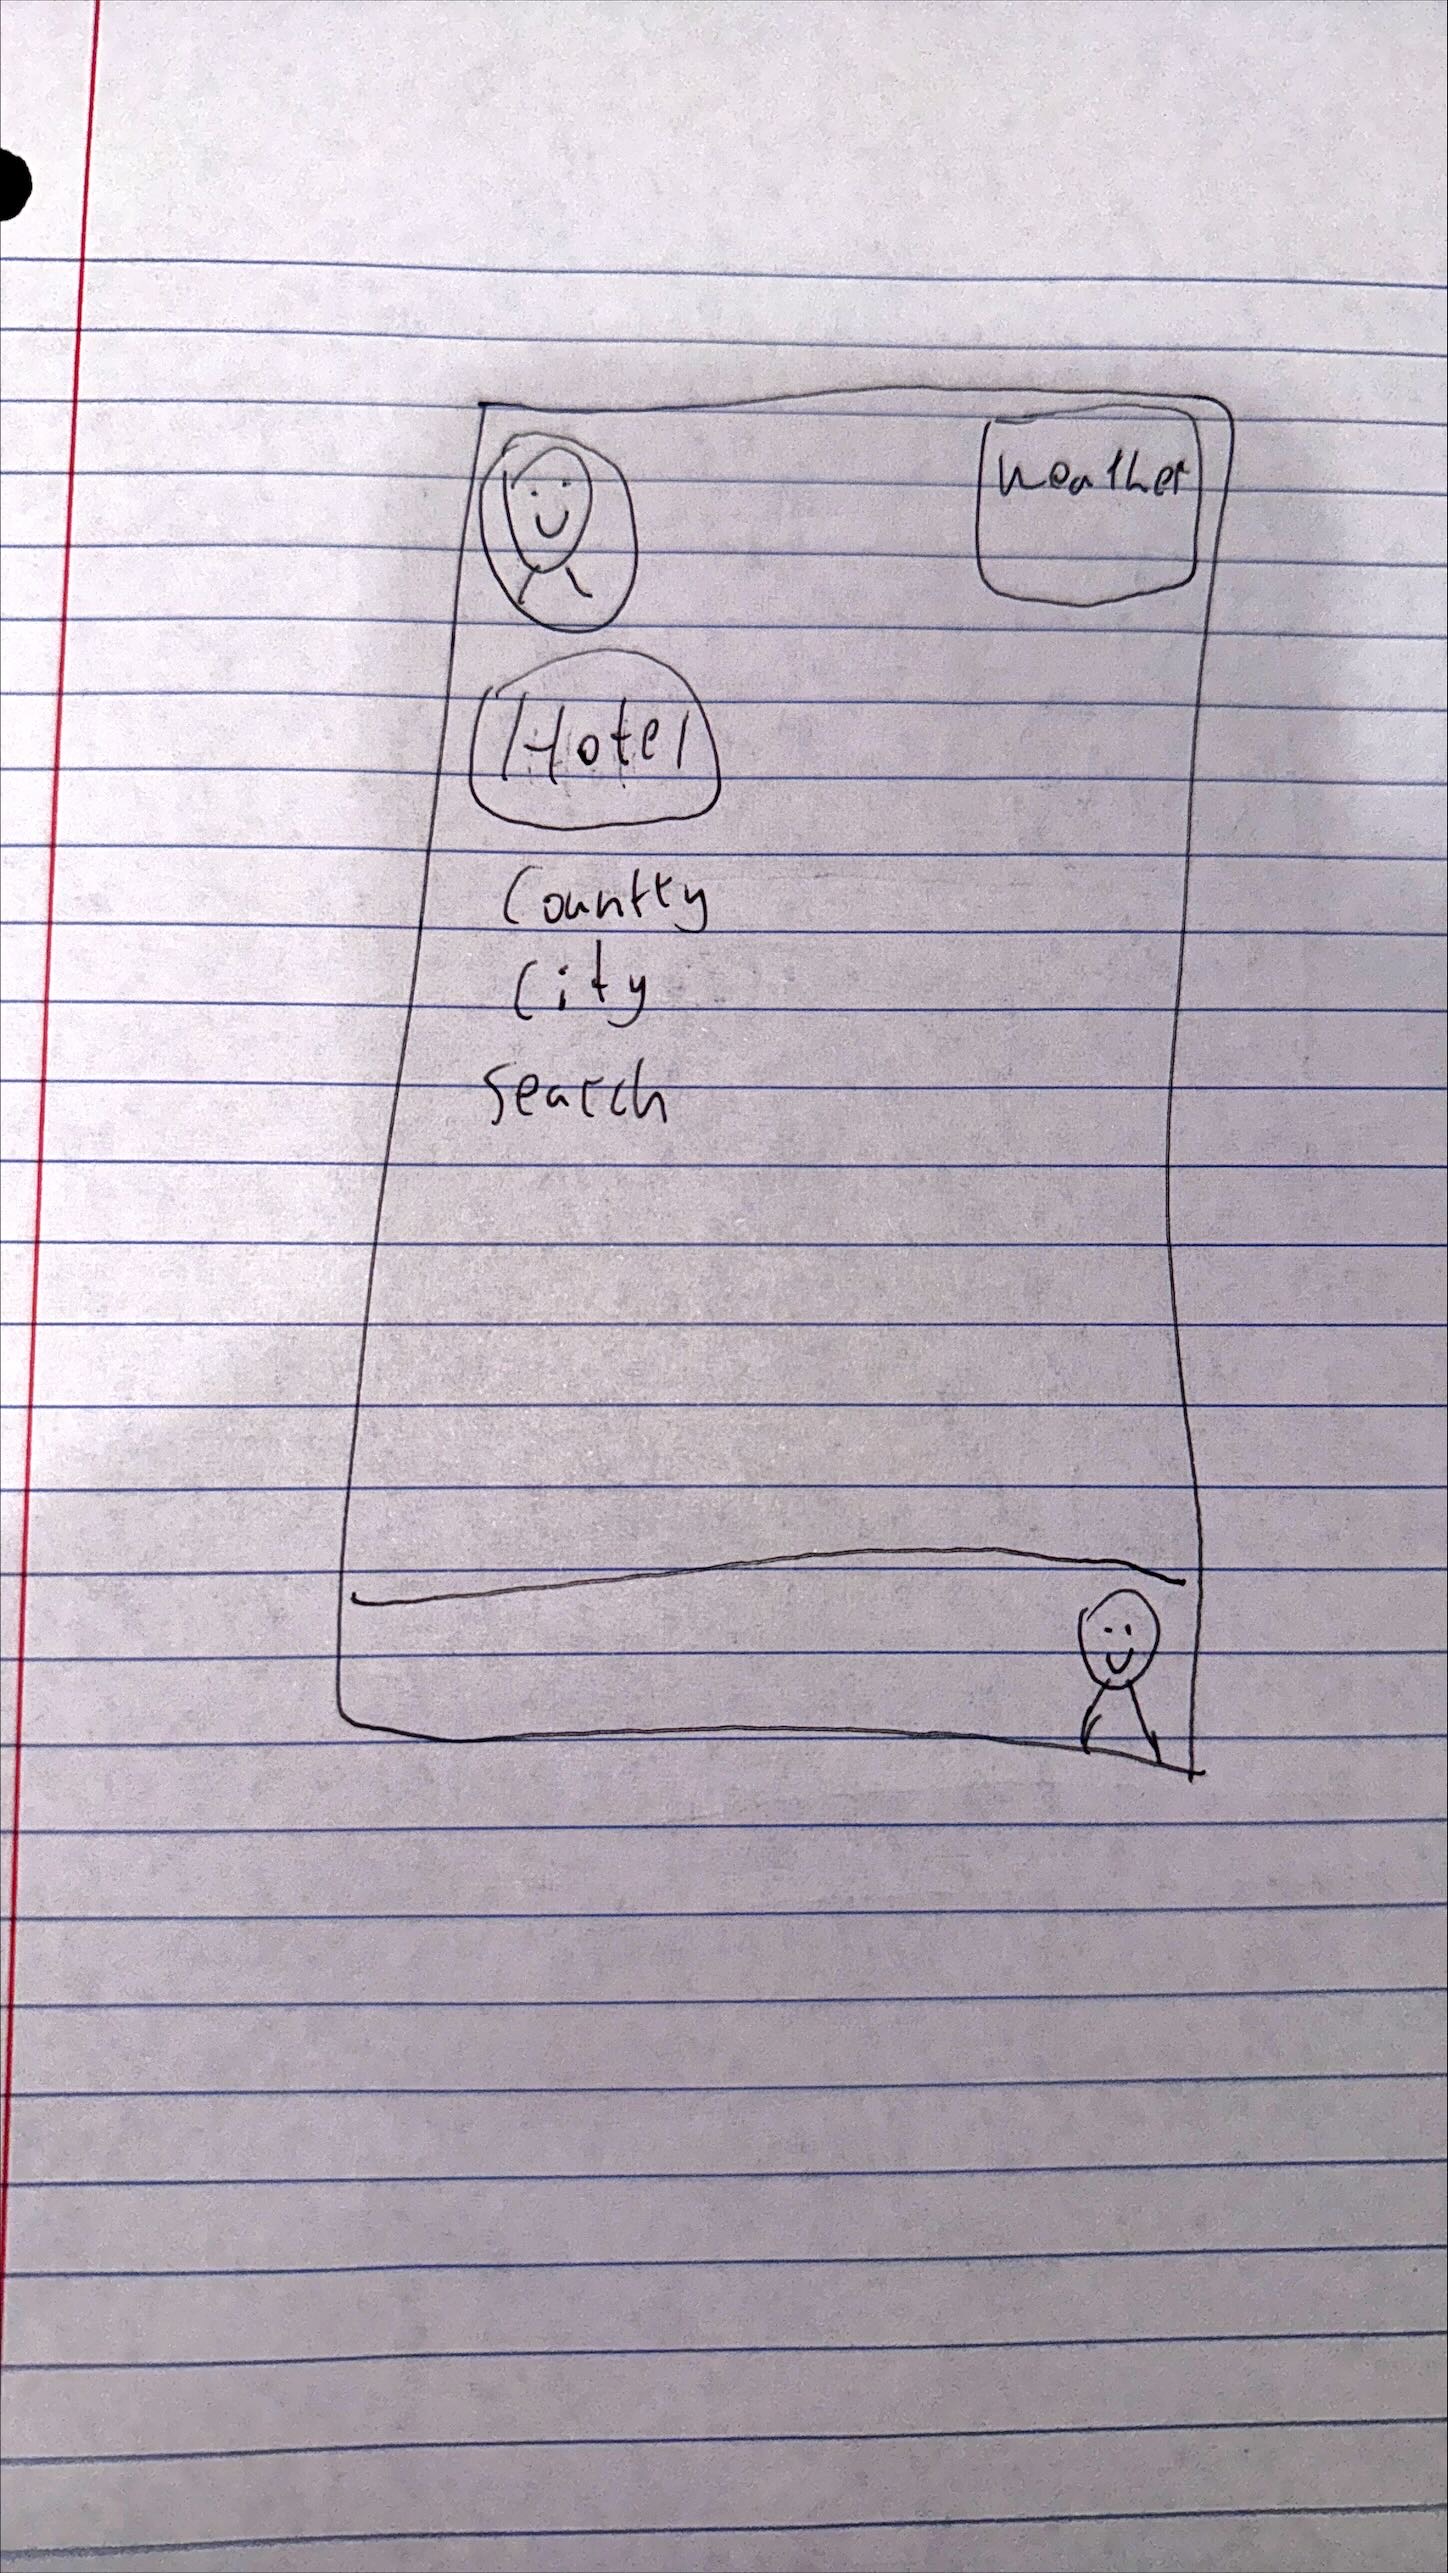 Weather
Hotel
Country
City
Search